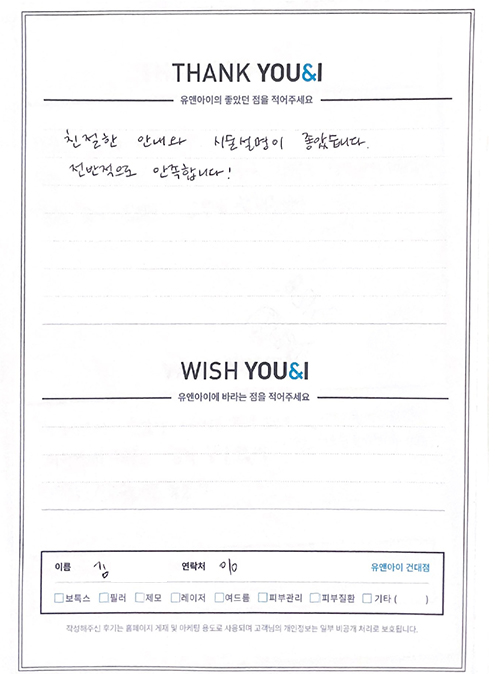 THANK YOU&I
유앤아이의 좋았던 점을 적어주세요
친절한 안내와 시술설명이 좋았습니다.
전반적으로 만족합니다!
WISH YOU&I
유앤아이에 바라는 점을 적어주세요
이름 김 연락처 010 유앤아이 건대점
보톡스 필러 제모 레이저 여드름 피부관리 피부질환 기타 ( )
작성해주신 후기는 홈페이지 게재 및 마케팅 용도로 사용되며 고객님의 개인정보는 일부 비공개 처리로 보호됩니다.